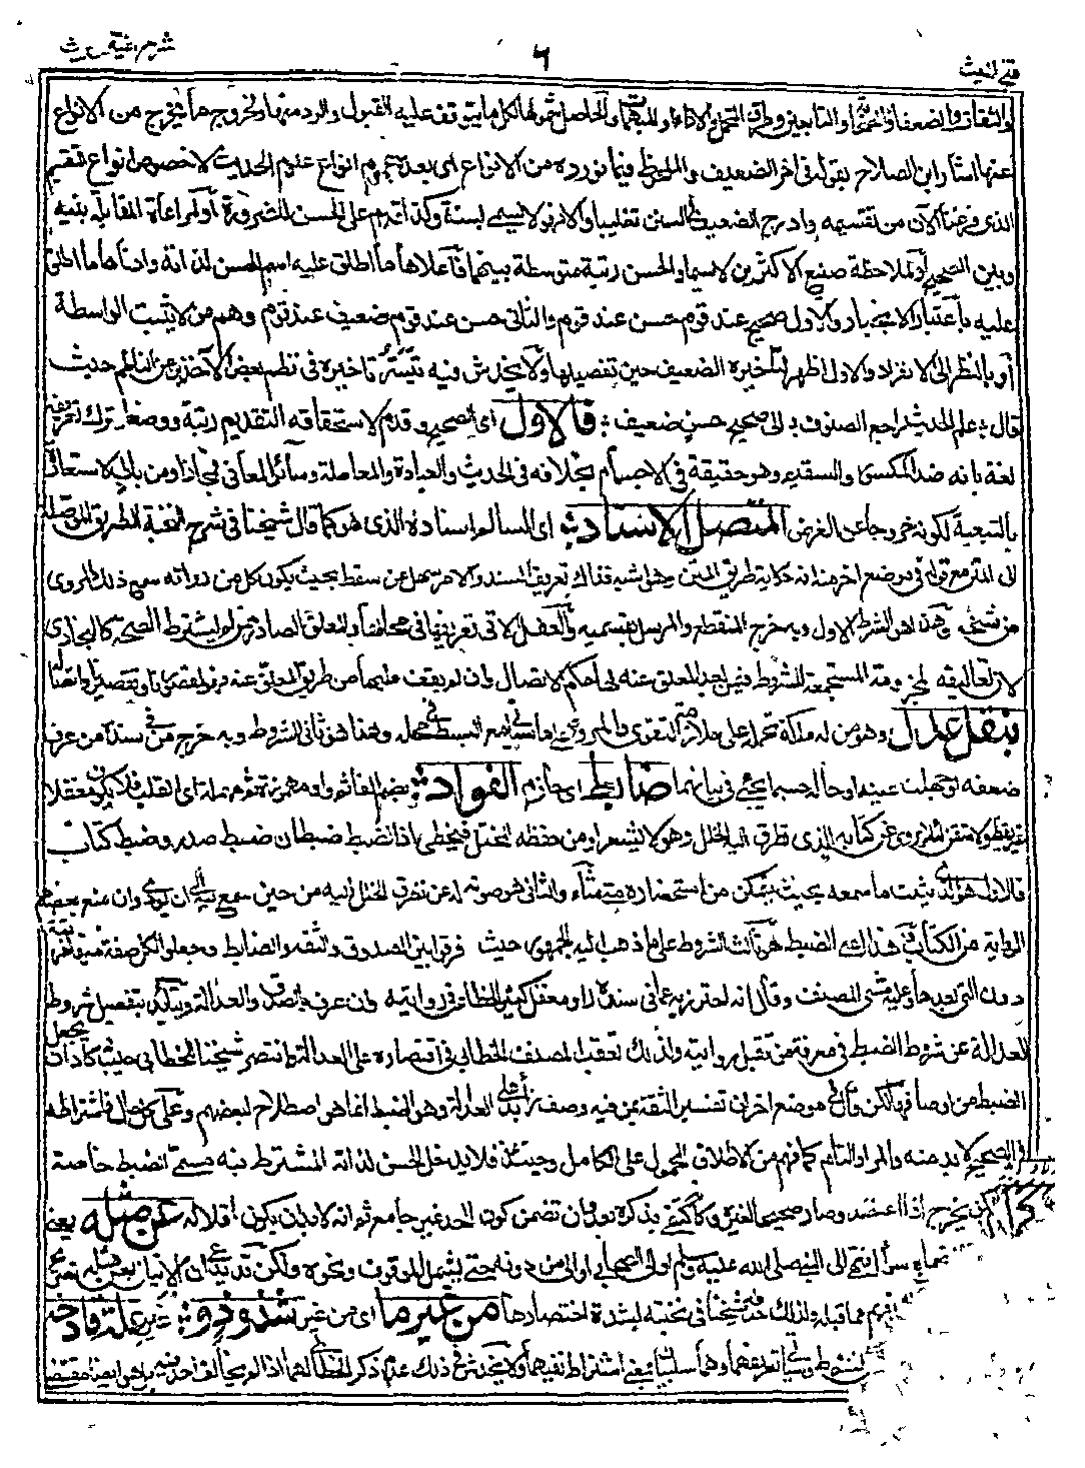 فتح المغيث
٦
شرح الفية حديث
والثقات والضعفاء والصحابة والتابعين وطرق التحمل والاداء والمبهمات والحاصل شمولها لكل ما يتوقف عليه القبول والرد منها والخروج ما يخرج من الانواع
عنها اشار ابن الصلاح بقوله في اخر الضعيف والملحوظ فيما نورده من الانواع اى بعده عموم انواع علوم الحديث لا خصوص انواع تقسيم
الذى فرغنا الآن من تقسيمه وادرج الضعيف في السنن تغليبا والا فهو لا يسمى لسنة وكذا قدم على الحسن للضرورة أو لمراعاة المقابلة بينه
وبين الصحيح أو لملاحظة صنيع الاكثرين لا سيما والحسن رتبة متوسطة بينهما فأعلاها ما اطلق عليه اسم الحسن لذاته وادناها ما اطلق
عليه باعتبار الانجبار والاول صحيح عند قوم حسن عند قوم والثاني حسن عند قوم ضعيف عند قوم وهم من لا يثبت الواسطة
أو بالنظر الى الانفراد والاول اظهر لتأخيره الضعيف حين تفصيلها ولا يخدش فيه تيسر تاخيره في نظم بعض الآخذين عن الناظم حيث
قال: علم الحديث راجع الصنوف: الى صحيح حسن ضعيف: فالاول اى الصحيح وقدم لاستحقاقه التقديم رتبة ووضعا وترك تعريفه
لغة بانه ضد المكسور والسقيم وهو حقيقة في الاجسام بخلافه في الحديث والعبادة والمعاملة وسائر المعاني فمجاز او من باب الاستعارة
بالتبعية لكونه خروجا عن الغرض المتصل الاسناد: اى السالم اسناده الذى هو كما قال شيخنا في شرح النخبة الطريق الموصلة
الى المتن مع قوله في موضع اخر منه انه حكاية طريق المتن وهو اشبه فذاك تعريف السند والامر سهل عن سقط بحيث يكون كل من رواته سمع ذلك المروى
من شيخه وهذا هو الشرط الاول وبه خرج المنقطع والمرسل بقسميه والمعضل الاتى تعريفها في محالها والمعلق الصادر ممن لم يشترط الصحة كالبخارى
لان تعاليقه المجزومة المستجمعة للشروط فيمن بعد المعلق عنه لها حكم الاتصال وان لم نقف عليها من طريق المعلق عنه فهو لقصورنا وتقصيرنا واتصاله
بنقل عدل وهو من له ملكة تحمله على ملازمة التقوى والمروءة على ما سيأتى مع البسط في محله وهذا هو ثاني الشروط وبه خرج من في سنده من عرف
ضعفه او جهلت عينه او حاله حسبما يجئ في بيانهما ضابط اى حازم الفؤاد: بضم الفاء ثم واو مهموزة ثم مهملة اى القلب فلا يكون مغفلا
غير يقظ ولا متقن لئلا يروى عن كتابه الذى تطرق اليه الخلل وهو لا يشعر او من حفظه المختل فيخطئ اذ الضبط ضبطان ضبط صدر وضبط كتاب
فالاول هو الذى يثبت ما سمعه بحيث يتمكن من استحضاره متى شاء والثاني هو صونه له عن تطرق الخلل اليه من حين سمع فيه الى ان يؤدى وان منع بعضهم
الرواية من الكتاب وهذا اى الضبط هو ثالث الشروط على ما ذهب اليه الجمهور حيث فرقوا بين الصدوق والثقة والضابط وجعلوا لكل صفة منها مرتبة
دون التي بعدها وعليه مشى المصنف وقال انه احترز به عما في سنده راو مغفل كثير الخطأ في روايته وان عرف بالصدق والعدالة ويتأكد بتفصيل شروط
العدالة عن شروط الضبط في معرفة من تقبل روايته ولذلك تعقب المصنف الخطابي في اقتصاره على العدالة وانتصر شيخنا للخطابي حيث كاد ان يجعل
الضبط من اوصافها لكن قال في موضع اخر ان تفسير الثقة بمن فيه وصف زائد على العدالة وهو الضبط انما هو اصطلاح لبعضهم وعلى كل حال فاشتراطه
في الصحيح لابد منه والمراد التام كما فهم من الاطلاق المحمول على الكامل وحينئذ فلا يدخل الحسن لذاته المشترط فيه مسمى الضبط خاصة
لكن يخرج اذا اعتضد وصار صحيحا لغيره وكأنه اكتفى بذكره بعد وان تضمن كون الحد غير جامع ثم انه لابد ان يكون نقلا له عن مثله يعنى
وهكذا الى منتهاه سواء انتهى الى النبي صلى الله عليه وسلم او الى الصحابي او الى من دونه حتى يشمل الموقوف ونحوه ولكن قد يدعى ان الاتيان بعن مثله تصريح
يفهم مما قبله ولذلك حذفه شيخنا في نخبته لشدة اختصارها من غير ما اى من غير شذوذ و: غير علة قادحة
الشروط وسيأتي تعريفهما وهما سلبيان بمعنى اشتراط نفيهما ولا يخدش في ذلك عدم ذكر الخطابي لهما اذ لم يخالف احد فيه بل هو ايضا مقتضى